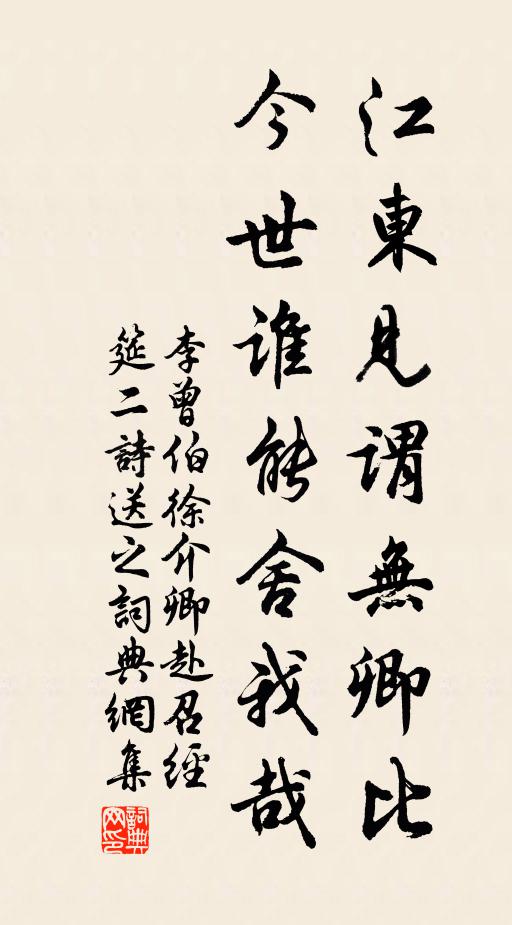 江東見謂無卿比
今世誰能舍我哉
李曾伯徐介卿赴召經
筵二詩送之詞典網集
詞典网印